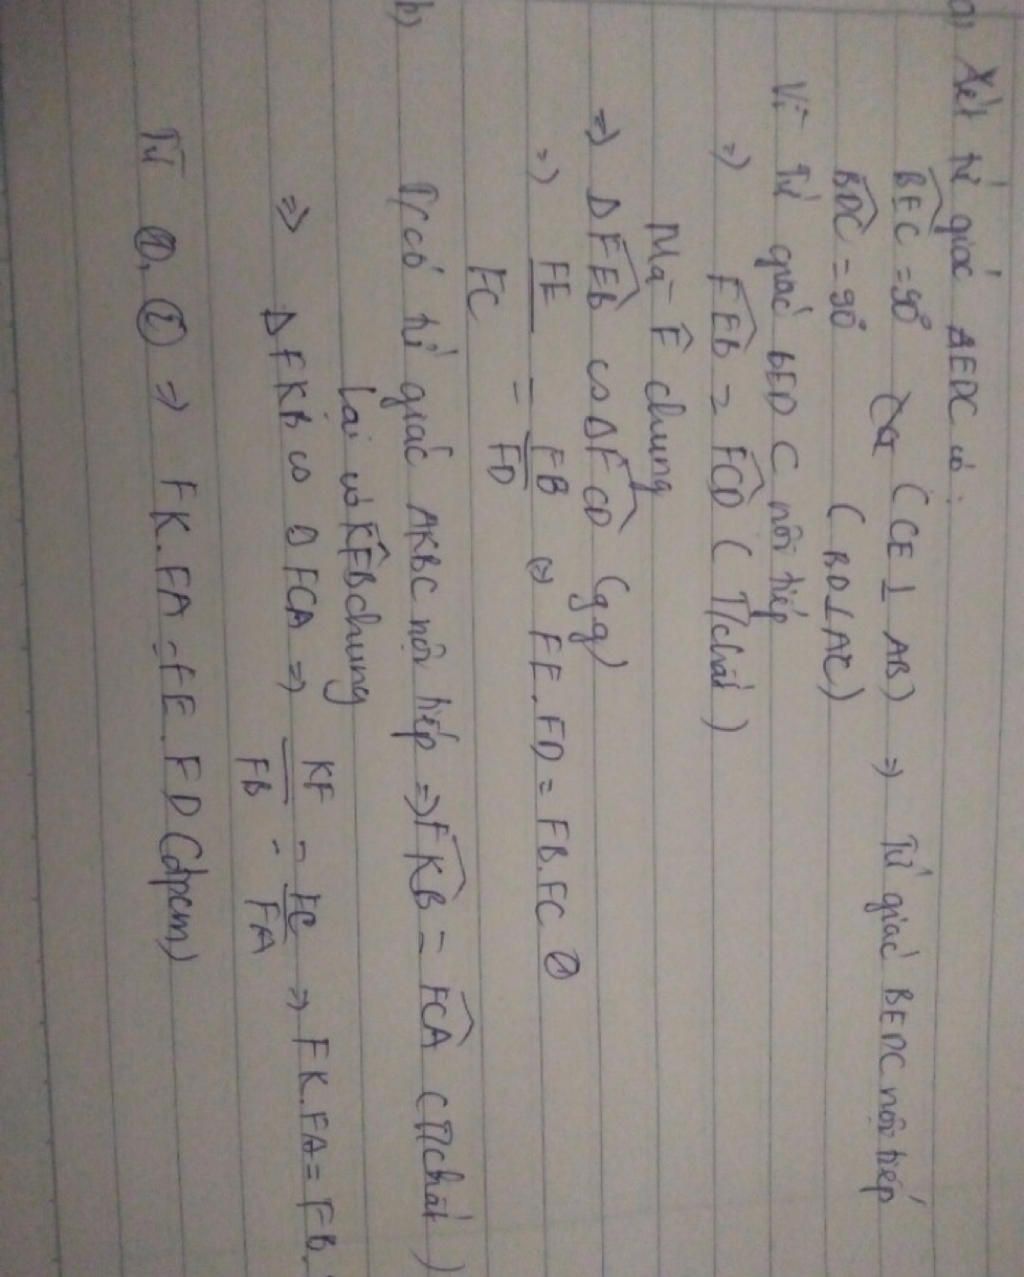 a) Xét tứ giác BEDC có:
BEC = 90° (CE ⊥ AB) ⇒ Tứ giác BEDC nội tiếp
BDC = 90° (BD ⊥ AC)
Vì Tứ giác BED C nội tiếp
⇒ FEB = FCD (T/chất)
Mà F chung
⇒ Δ FEB ∽ Δ FCD (gg)
⇒ FE/FC = FB/FD ⇔ FE. FD = FB.FC ①
b) T/có tứ giác AKBC nội tiếp ⇒ FKB = FCA (T/chất)
Lại có KFB chung
⇒ Δ FKB ∽ Δ FCA ⇒ KF/FB = FC/FA ⇒ FK.FA = FB.
Từ ①, ② ⇒ FK.FA = FE. FD (đpcm)